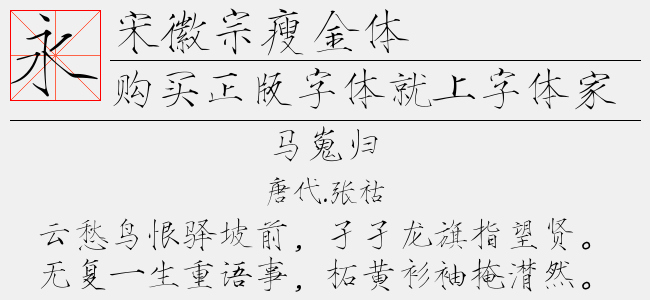 永
宋徽宗瘦金体
购买正版字体就上字体家
马嵬归
唐代.张祜
云愁鸟恨驿坡前，孑孑龙旗指望贤。
无复一生重语事，柘黄衫袖掩潸然。